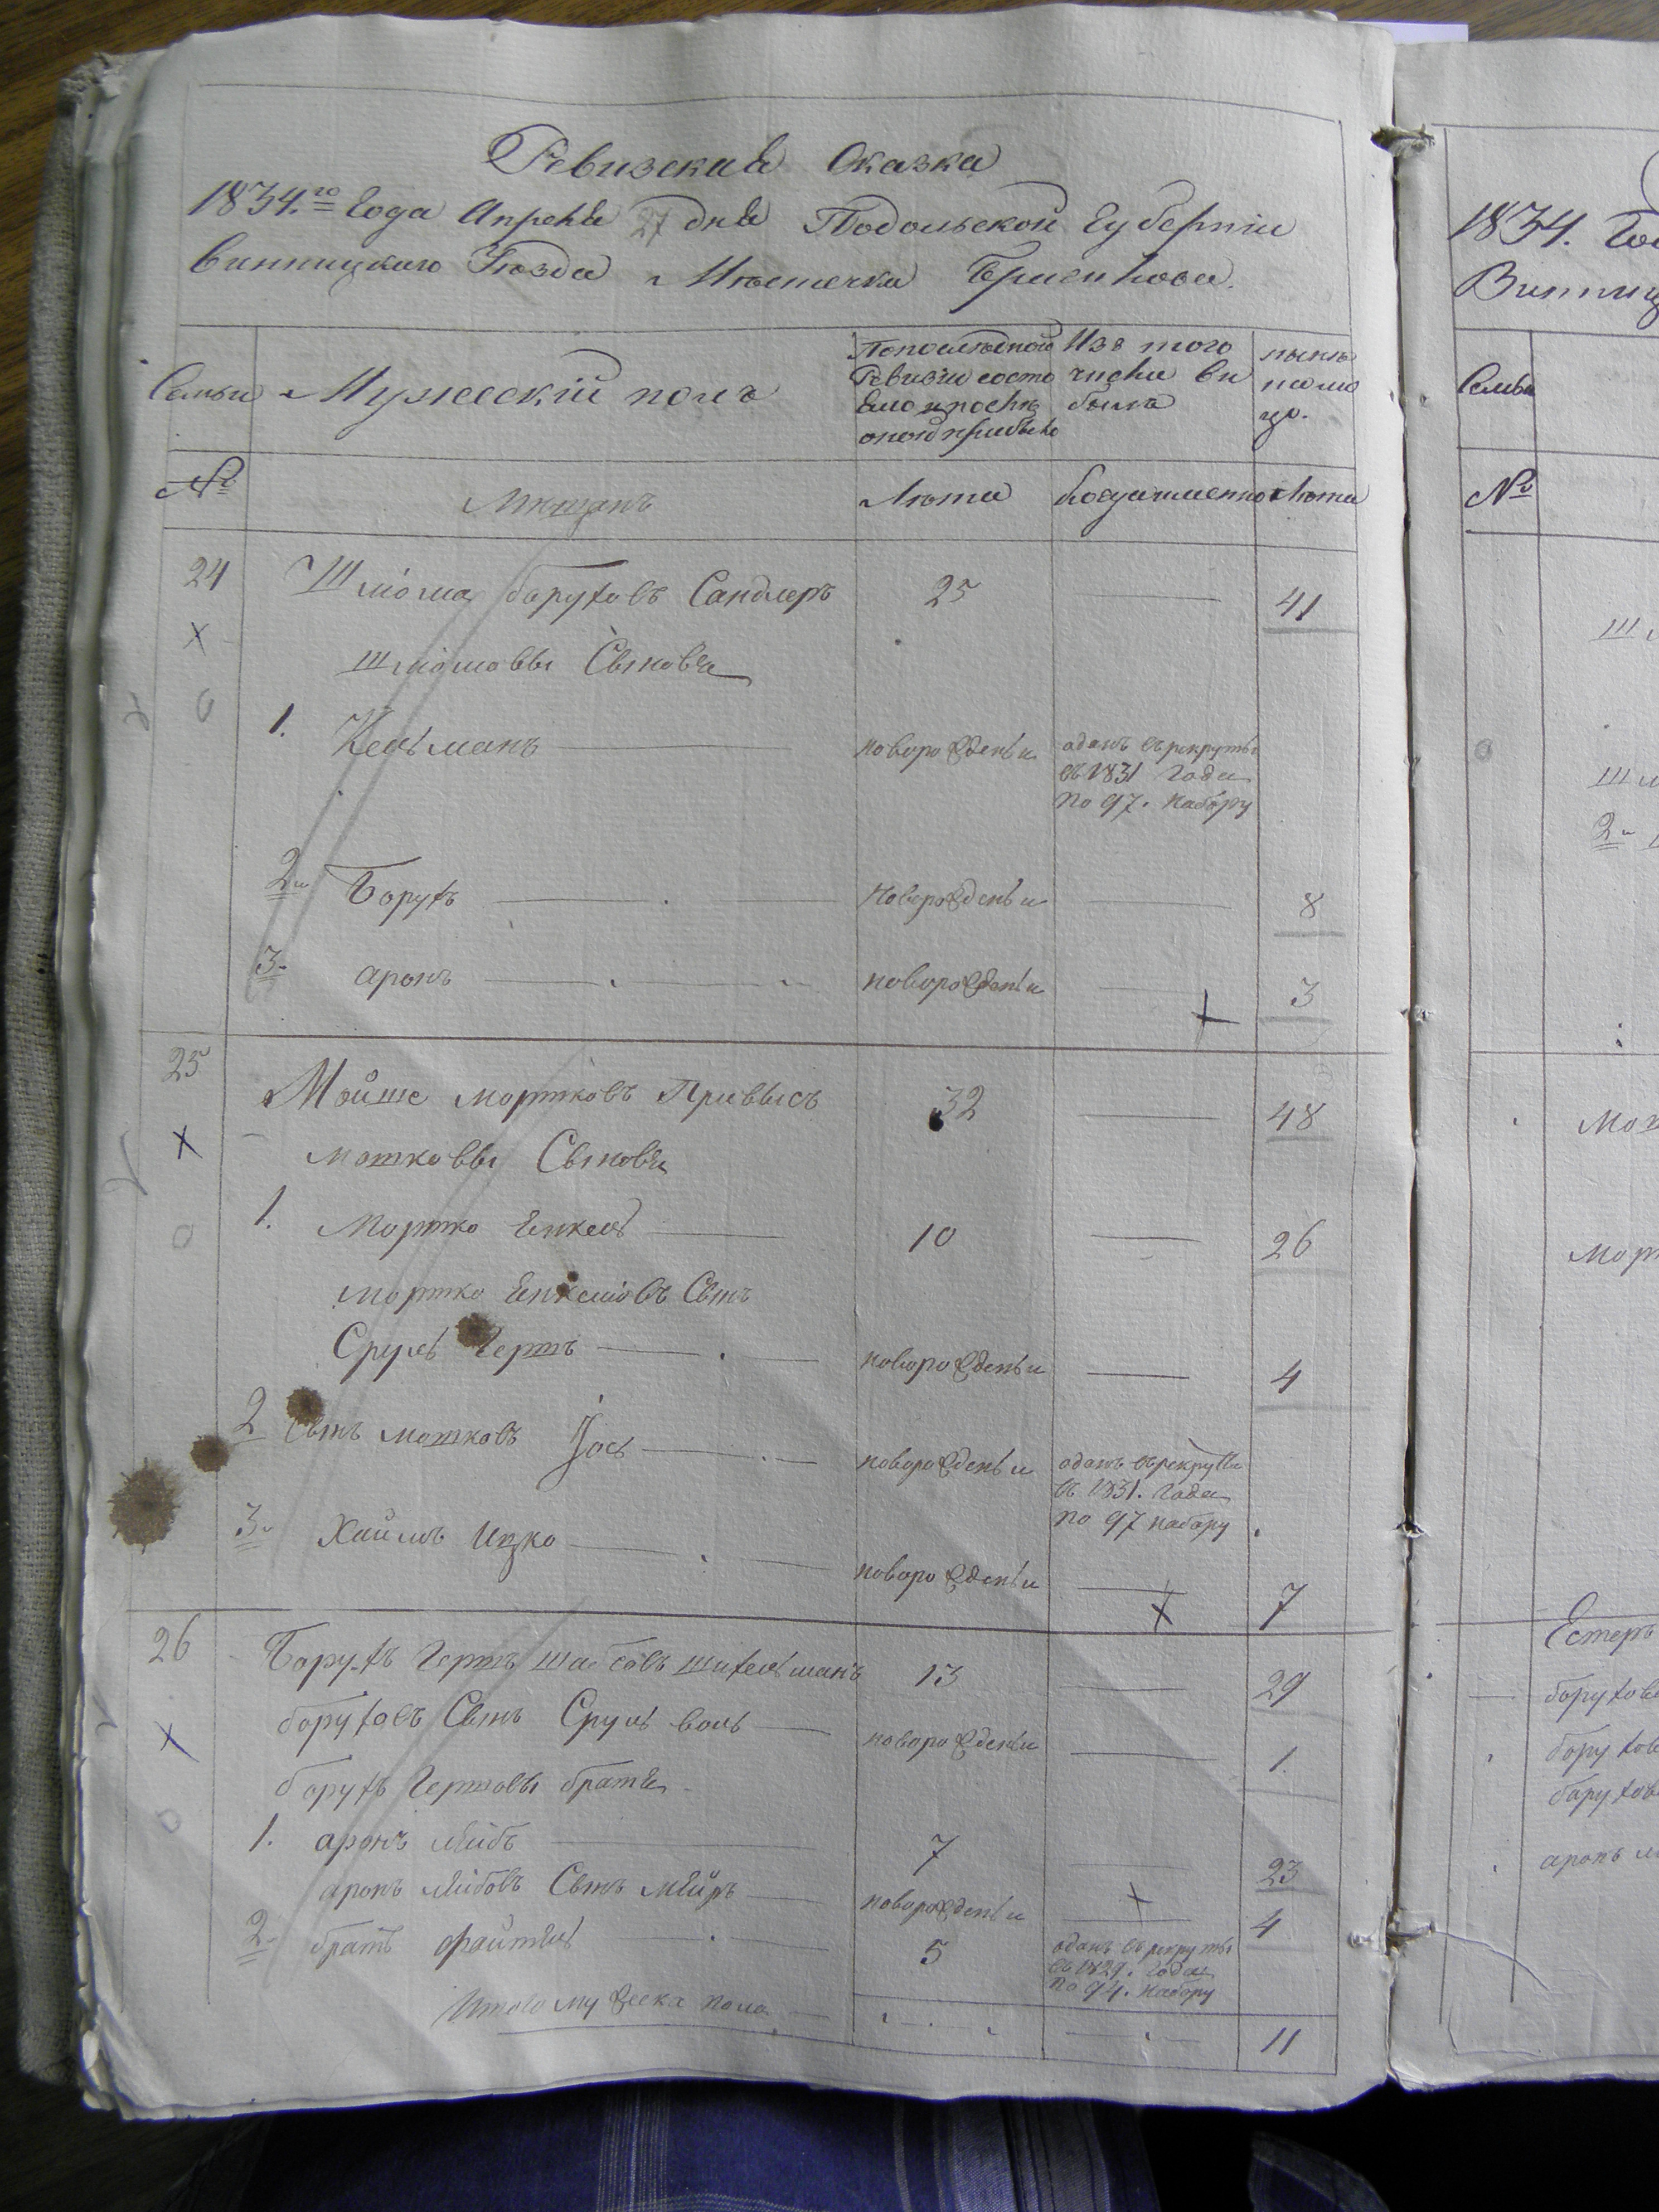 Ревизская Сказка
1834.го Года Апреля 27 дня Подольской Губернии
Винницкого Уѣзда Мѣстечка Браилова.
Семьи
Мужескiй полъ
По последной
Ревизiи состо
яло и послѣ
оной прибыло
Изъ того
числа вы
было
нынѣ
на ли
цо.
№
Мѣщанъ
Лѣта
Когда именно
Лѣта
24 Шлiома Боруховъ Сандлеръ 25 41
Шлiомовы Сыновья
1. Кельманъ новорожденъи
аданъ въ рекруты
въ 1831 Года
по 97. Набору
2 Борухъ новорожденъи 8
3 аронъ новорожденъи 3
25 Мойше Мортковъ 32 48
Мошковы Сыновья
1. Мортко Енкель 10 26
Мортко Енкелiовъ Сынъ
Сруль Гершъ новорожденъи 4
2 Сынъ Мошковъ Iось новорожденъи
аданъ въ рекруты
въ 1831. Года
по 97 набору
3 Хаимъ Ицко новорожденъи 7
26 Борухъ Гершъ Шабсовъ 13 29
Боруховъ Сынъ Сруль новорожденъи 1.
Борухъ Гершовы братья
1. аронъ Лейбъ 7 23
аронъ Лейбовъ Сынъ Мейръ новорожденъи 4
2 братъ Файтель 5
аданъ въ рекруты
въ 1829. Года
по 94. Набору
Итого мужеска пола 11
1834. Го
Винниц
Семьи
№
Шл
Шл
2
Мош
Морт
Естеръ
Борухов
Борухов
Борухов
аронъ